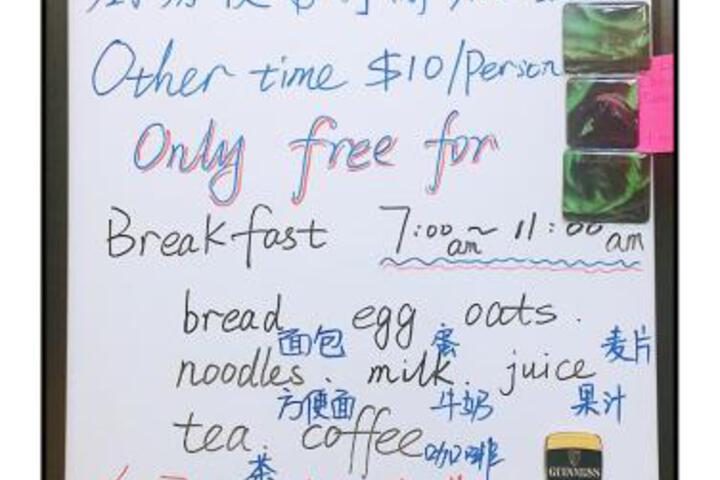 Other time $10/Person
Only free for
Breakfast 7:00am~11:00am
bread egg oats.
面包 蛋 麦片
noodles. milk. juice
方便面 牛奶 果汁
tea. coffee
茶 咖啡
GUINNESS